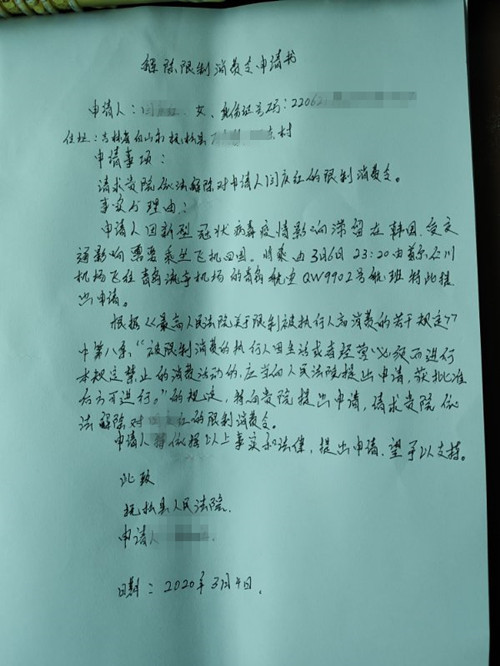 解除限制消费令申请书
申请人:女、身份证号码:22062
住址:吉林省白山市抚松县村
申请事项:
请求贵院依法解除对申请人闫庆红的限制消费令。
事实与理由:
申请人因新型冠状病毒疫情影响滞留在韩国、受交
通影响需要乘坐飞机回国、将乘由3月6日23:20由首尔仁川
机场飞往青岛流亭机场的青岛航空QW9902号航班特此提
出申请。
根据《最高人民法院关于限制被执行人高消费的若干规定》
中第八条,“被限制消费的执行人因生活或者经营必须而进行
本规定禁止的消费活动的,应当向人民法院提出申请,获批准
后方可进行。”的规定,特向贵院提出申请,请求贵院依
法解除对红的限制消费令。
申请人特依据以上事实和法律,提出申请、望予以支持。
此致
抚松县人民法院
申请人
日期:2020年3月4日.